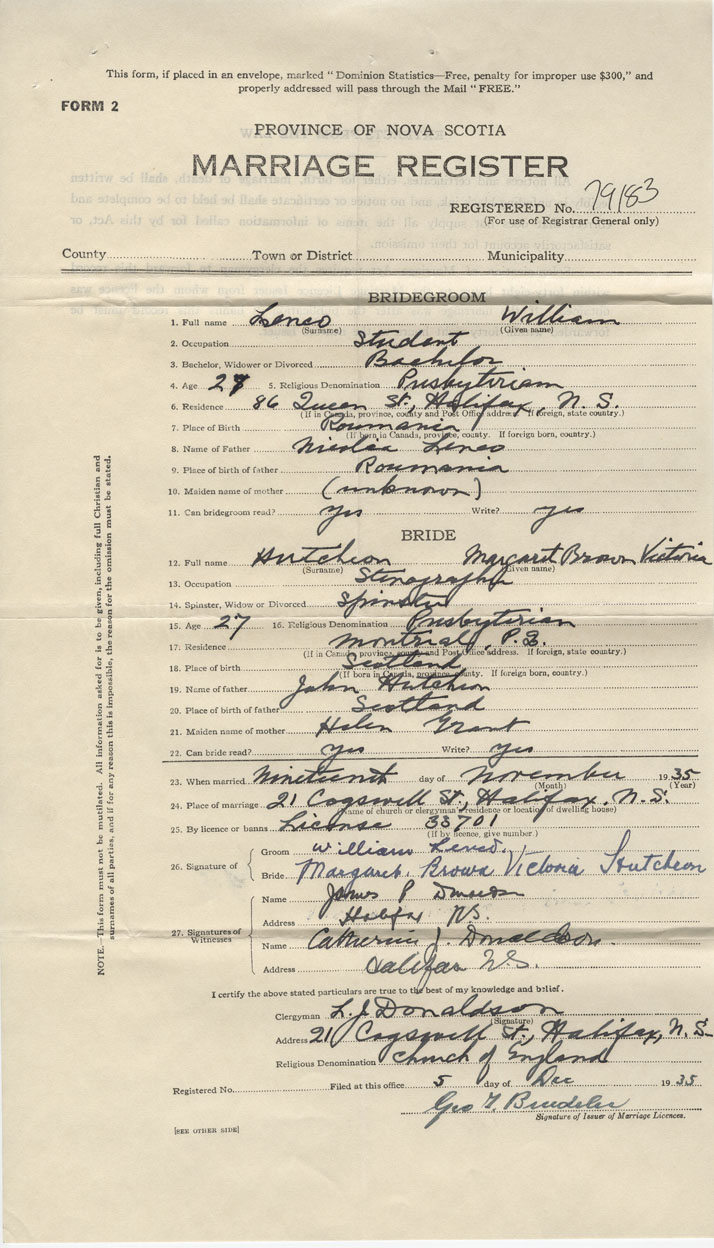 This form, if placed in an envelope, marked " Dominion Statistics—Free, penalty for improper use $300," and
properly addressed will pass through the Mail "FREE."
FORM 2
PROVINCE OF NOVA SCOTIA
MARRIAGE REGISTER
REGISTERED No. 79183
(For use of Registrar General only)
County Town or District Municipality
BRIDEGROOM
1. Full name Lenco William
(Surname) (Given name)
2. Occupation Student
3. Bachelor, Widower or Divorced Bachelor
4. Age 27 5. Religious Denomination Presbyterian
6. Residence 86 Queen St., Halifax, N.S.
(If in Canada, province, county and Post Office address. If foreign, state country.)
7. Place of Birth Roumania
(If born in Canada, province, county. If foreign born, country.)
8. Name of Father Nicolea Lenco
9. Place of birth of father Roumania
10. Maiden name of mother (unknown)
11. Can bridegroom read? yes Write? yes
BRIDE
12. Full name Hutcheon Margaret Brown Victoria
(Surname) (Given name)
13. Occupation Stenographer
14. Spinster, Widow or Divorced Spinster
15. Age 27 16. Religious Denomination Presbyterian
17. Residence Montreal, P.Q.
(If in Canada, province, county and Post Office address. If foreign, state country.)
18. Place of birth Scotland
(If born in Canada, province, county. If foreign born, country.)
19. Name of father John Hutcheon
20. Place of birth of father Scotland
21. Maiden name of mother Helen Grant
22. Can bride read? yes Write? yes
23. When married Nineteenth day of November 1935
(Month) (Year)
24. Place of marriage 21 Cogswell St., Halifax, N.S.
(Name of church or clergyman's residence or location of dwelling house)
25. By licence or banns License 33701
(If by licence, give number.)
26. Signature of
Groom William Lenco.
Bride Margaret Brown Victoria Hutcheon
27. Signatures of Witnesses
Name James P
Address Halifax N.S.
Name Catherine J. Donaldson.
Address Halifax N.S.
I certify the above stated particulars are true to the best of my knowledge and belief.
Clergyman L. J. Donaldson
(Signature)
Address 21 Cogswell St., Halifax, N.S.
Religious Denomination Church of England
Registered No. Filed at this office 5 day of Dec 1935
Geo
Signature of Issuer of Marriage Licences.
[SEE OTHER SIDE]
NOTE.—This form must not be mutilated. All information asked for is to be given, including full Christian and
surnames of all parties, and if for any reason this is impossible, the reason for the omission must be stated.